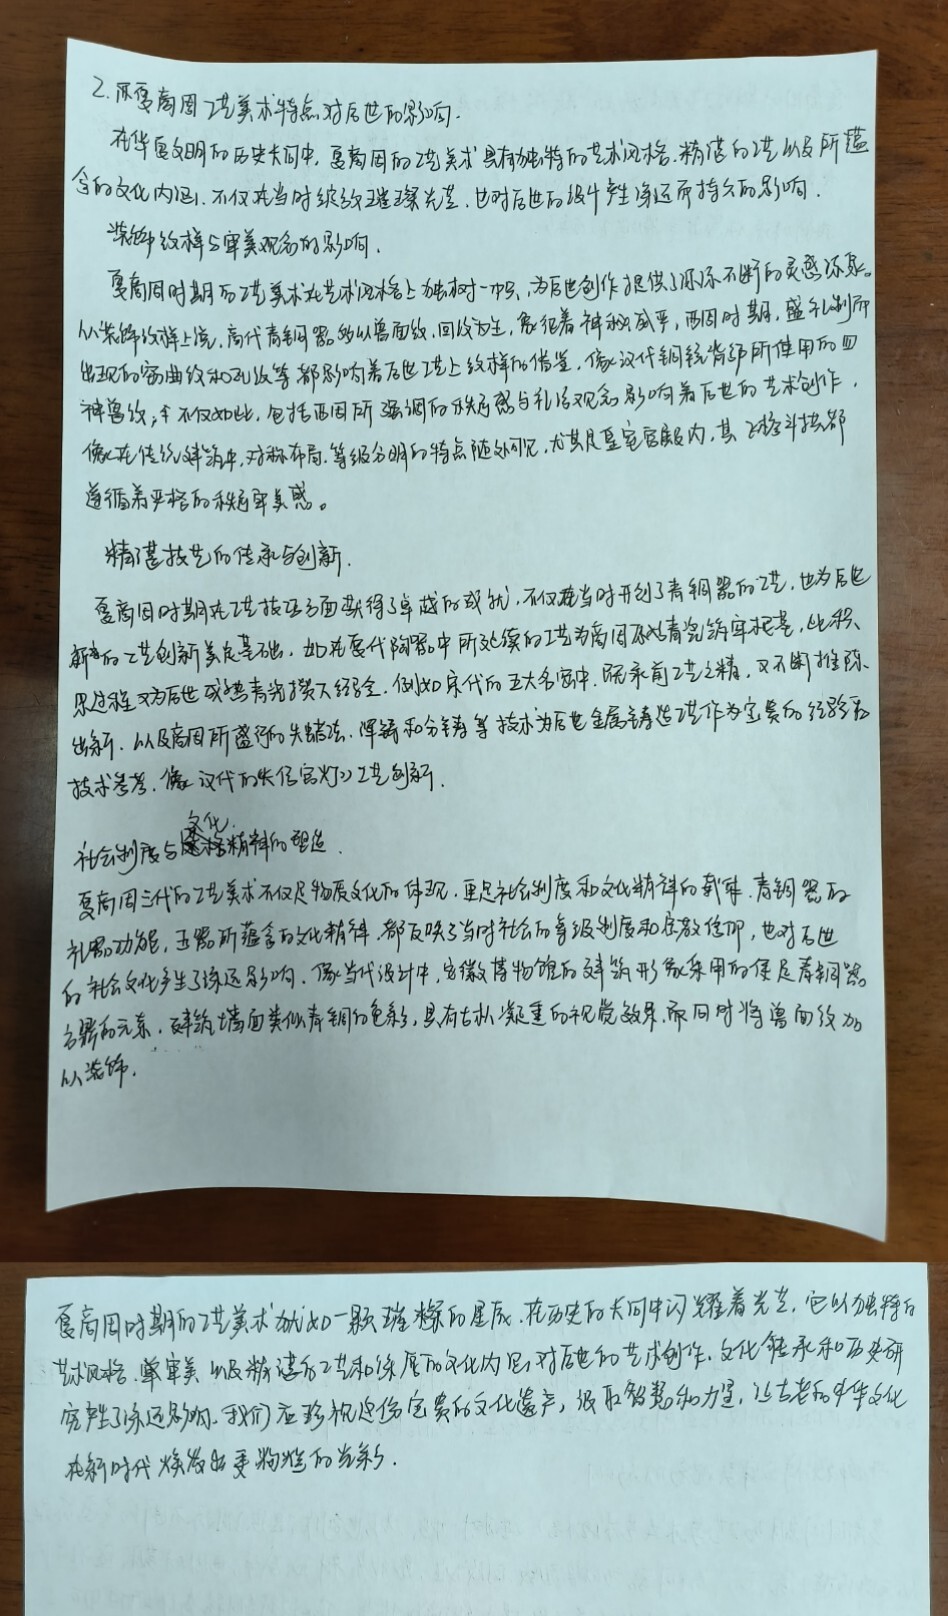 2.夏商周工艺美术特点对后世的影响.
在华夏文明的历史长河中,夏商周的工艺美术具有独特的艺术风格.精湛的工艺以及所蕴
含的文化内涵,不仅在当时绽放璀璨光芒.也对后世的设计产生深远而持久的影响.
装饰纹样与审美观念的影响.
夏商周时期的工艺美术在艺术风格上独树一帜,为后世创作提供了源源不断的灵感源泉。
从装饰纹样上说,商代青铜器多以兽面纹,回纹为主,象征着神秘威严,西周时期,盛礼制而
出现的窃曲纹和瓦纹等都影响着后世工艺上纹样的借鉴,像汉代铜镜背部所使用的四
神兽纹;不仅如此,包括西周所强调的秩序感与礼法观念影响着后世的艺术创作,
像在传统建筑中,对称布局.等级分明的特点随处可见,尤其是皇室宫殿内,其斗拱都
遵循着严格的秩序审美感。
精湛技艺的传承与创新.
夏商周时期在工艺技法方面获得了卓越的成就,不仅在当时开创了青铜器的工艺,也为后世
的工艺创新奠定基础.如在夏代陶器中所延续的工艺为商周原始青瓷筑牢根基,此积
累过程又为后世成熟青瓷攒下经验,例如宋代的五大名窑中.既承前工艺之精,又不断推陈
出新.以及商周所盛行的失蜡法.浑铸和分铸等技术为后世金属铸造工艺作为宝贵的经验和
技术参考.像汉代的长信宫灯工艺创新.
社会制度与文化精神的塑造.
夏商周三代的工艺美术不仅是物质文化的体现.更是社会制度和文化精神的载体.青铜器的
礼器功能,玉器所蕴含的文化精神,都反映了当时社会的等级制度和宗教信仰,也对后世
的社会文化产生了深远影响.像当代设计中,安徽博物馆的建筑形象采用的便是青铜器
方鼎的元素.建筑墙面类似青铜的色彩,具有古朴凝重的视觉效果.而同时将兽面纹加
以装饰.
夏商周时期的工艺美术犹如一颗璀璨的星辰.在历史的长河中闪耀着光芒.它以独特的
艺术风格.审美以及精湛的工艺和深厚的文化内涵,对后世的艺术创作.文化继承和历史研
究产生了深远影响.我们应珍视这份宝贵的文化遗产,汲取智慧和力量,让古老的中华文化
在新时代焕发出更绚烂的光彩.